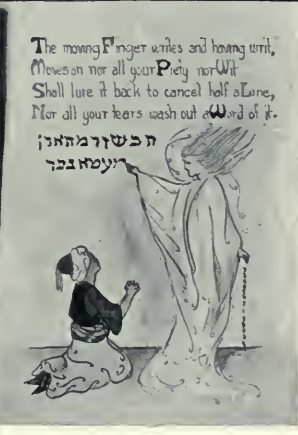 The moving Finger writes and having writ,
Moves on nor all your Piety nor Wit
Shall lure it back to cancel half a Line,
Nor all your tears wash out a Word of it.